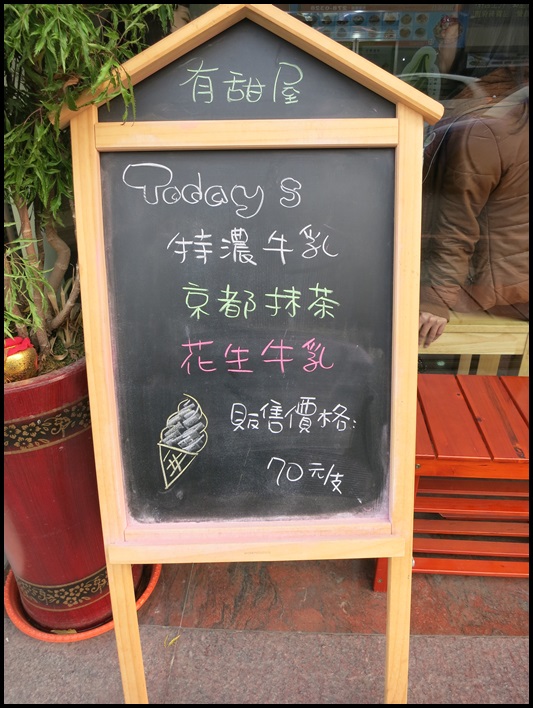 有甜屋
Today s
特濃牛乳
京都抹茶
花生牛乳
販售價格:
70元/支